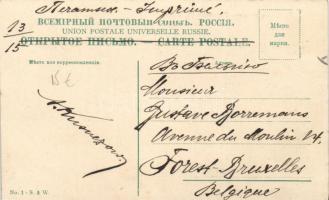 Печатное. Imprimé.
13/15
ВСЕМІРНЫЙ ПОЧТОВЫЙ СОЮЗЪ. РОССІЯ.
UNION POSTALE UNIVERSELLE RUSSIE.
ОТКРЫТОЕ ПИСЬМО. — CARTE POSTALE.
Мѣсто
для
марки.
Мѣсто для корреспонденціи.
Въ Бельгію
Monsieur
Gustave Borremans
Avenue du Moulin 14
Forest-Bruxelles
Belgique
No. 1 - S. & W.